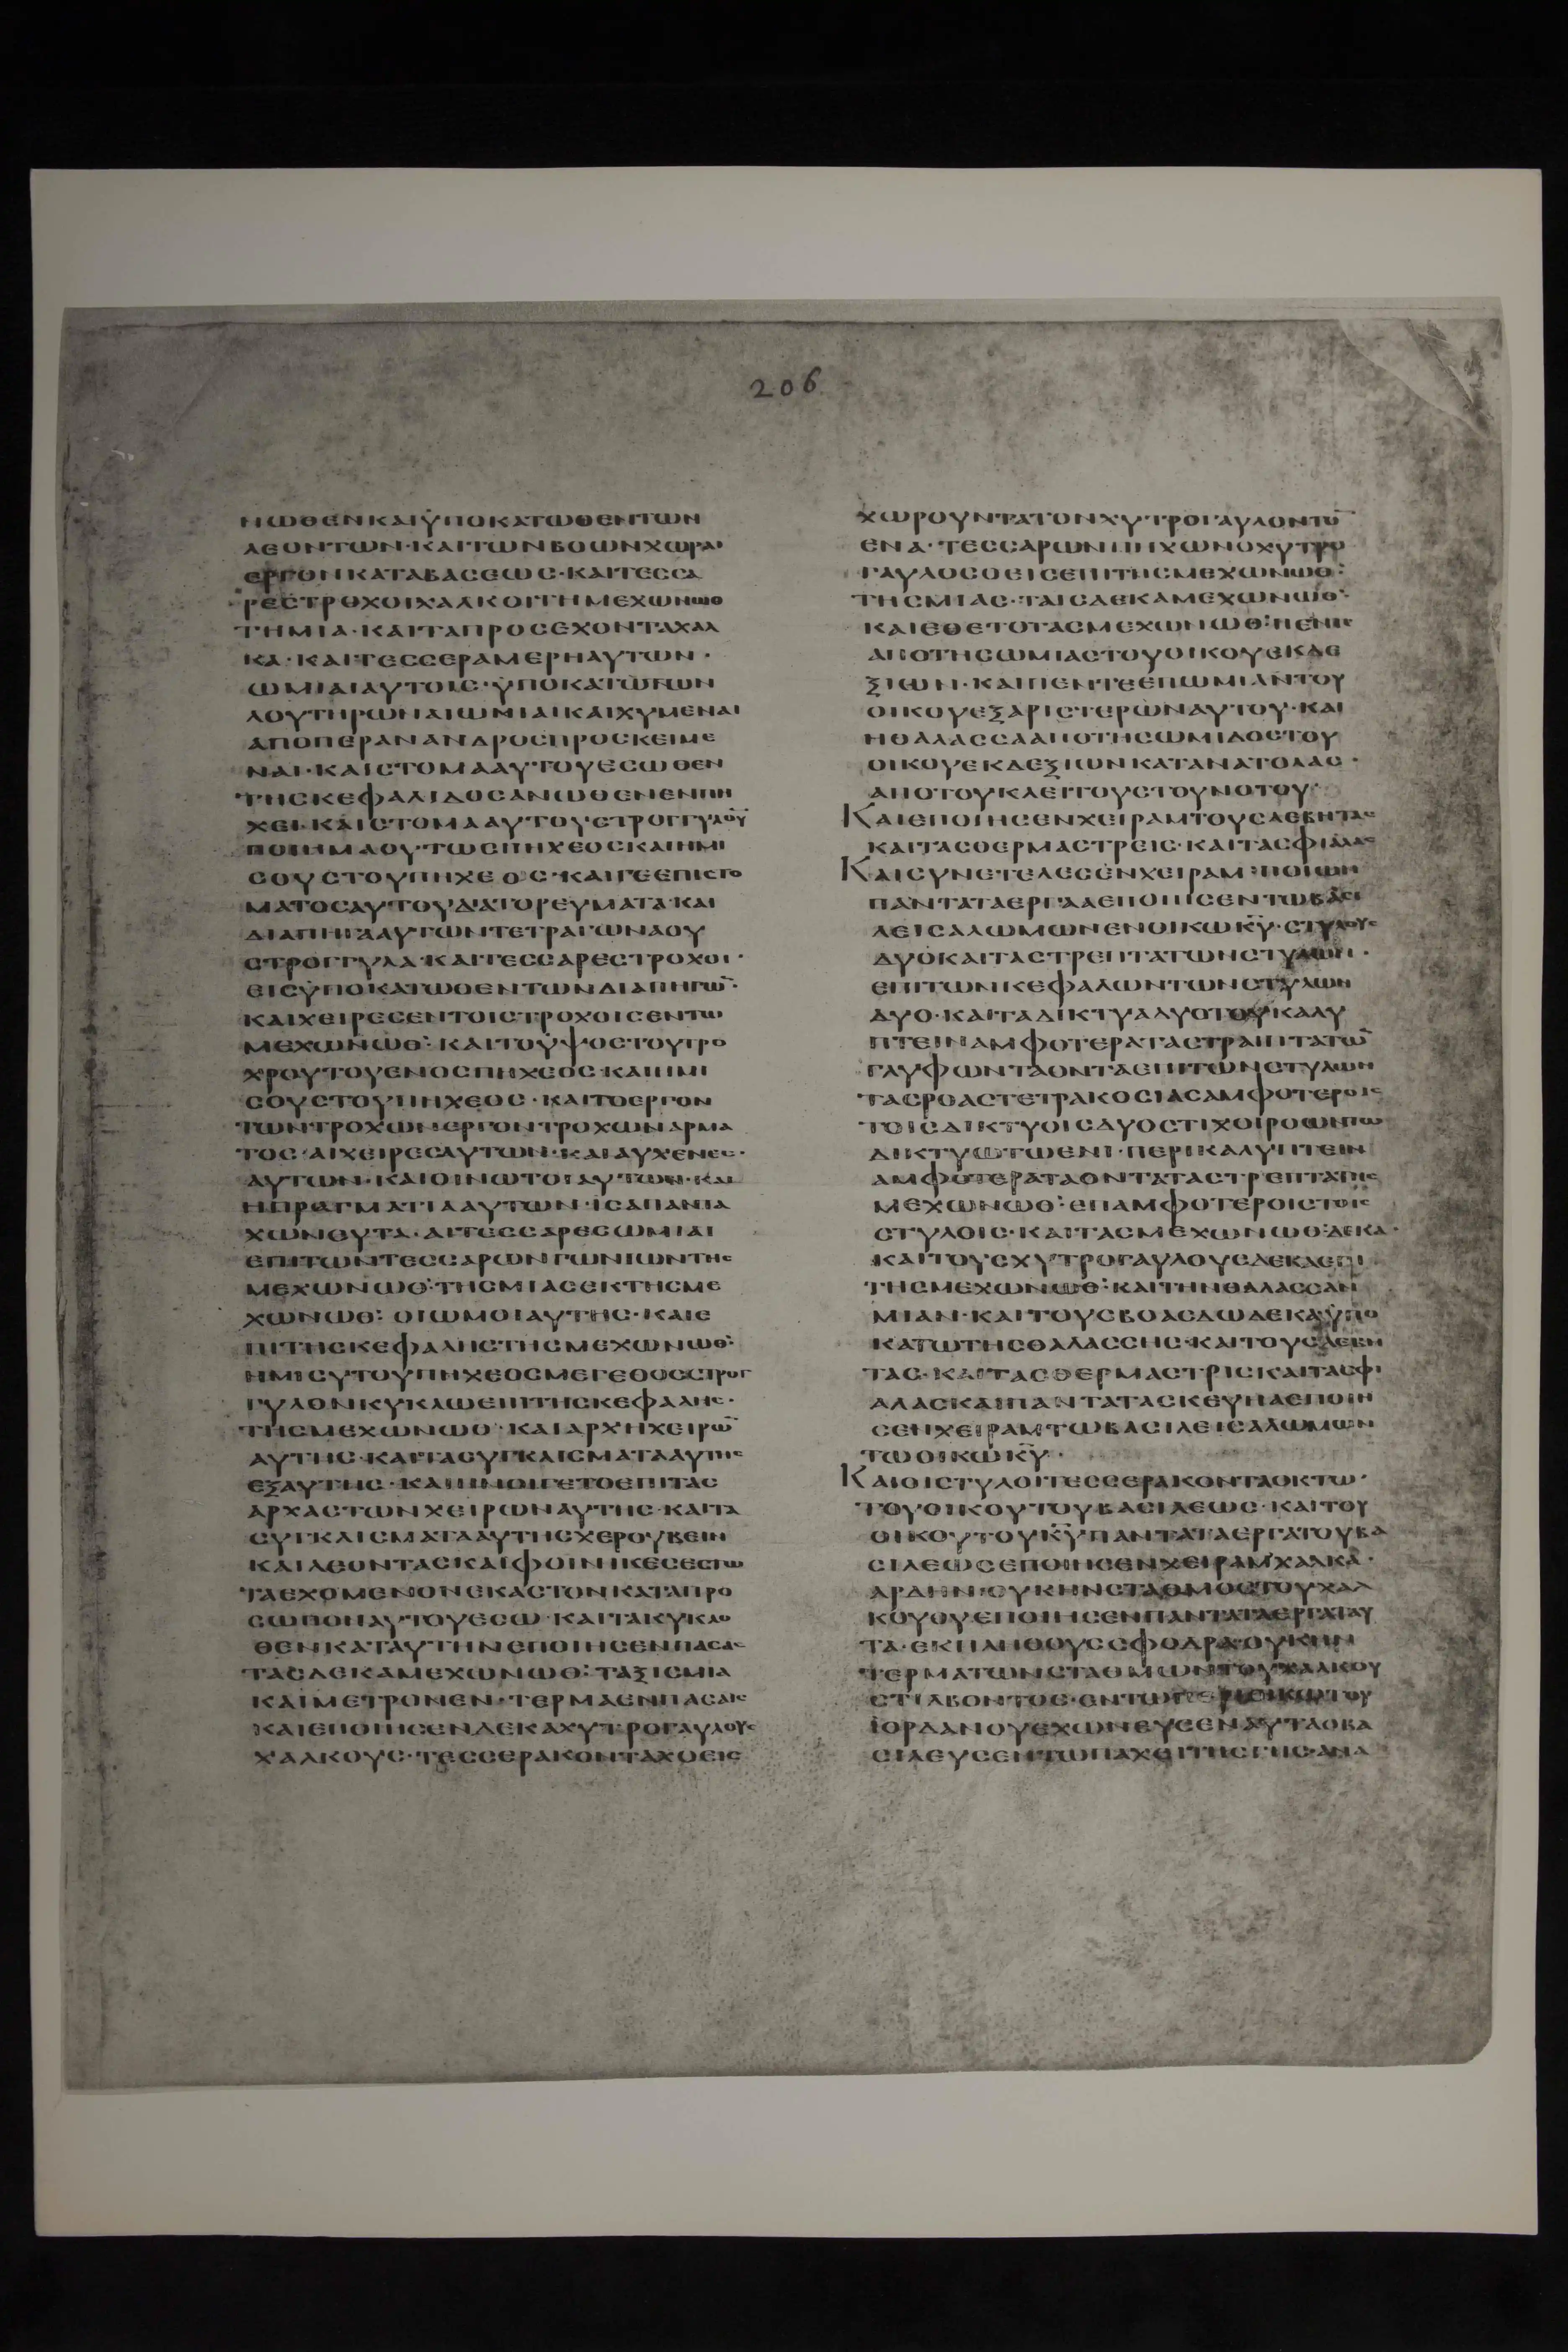 206
ΝΩΘΕΝΚΑΙΫΠΟΚΑΤΩΘΕΝΤΩΝ
ΛΕΟΝΤΩΝ·ΚΑΙΤΩΝΒΟΩΝΧΩΡΑΙ
ΕΡΓΟΝΚΑΤΑΒΑΣΕΩΣ·ΚΑΙΤΕΣΣΑ
ΡΕΣΤΡΟΧΟΙΧΑΛΚΟΙΤΗΜΕΧΩΝΩΘ
ΤΗΜΙΑ·ΚΑΙΤΑΠΡΟΣΕΧΟΝΤΑΧΑΛ
ΚΑ·ΚΑΙΤΕΣΣΕΡΑΜΕΡΗΑΥΤΩΝ·
ΩΜΙΑΙΑΥΤΟΙΣ·ΫΠΟΚΑΤΩΤΩΝ
ΛΟΥΤΗΡΩΝΑΙΩΜΙΑΙΚΑΙΧΥΜΕΝΑΙ
ΑΠΟΠΕΡΑΝΑΝΔΡΟΣΠΡΟΣΚΕΙΜΕ
ΝΑΙ·ΚΑΙΣΤΟΜΑΑΥΤΟΥΕΣΩΘΕΝ
ΤΗΣΚΕΦΑΛΙΔΟΣΑΝΩΘΕΝΕΝΠΗ
ΧΕΙ·ΚΑΙΣΤΟΜΑΑΥΤΟΥΣΤΡΟΓΓΥΛΟΥ
ΠΟΙΗΜΑΟΥΤΩΣΠΗΧΕΟΣΚΑΙΗΜΙ
ΣΟΥΣΤΟΥΠΗΧΕΟΣ·ΚΑΙΓΕΕΠΙΣΤΟ
ΜΑΤΟΣΑΥΤΟΥΔΙΑΤΟΡΕΥΜΑΤΑ·ΚΑΙ
ΔΙΑΠΗΓΑΑΥΤΩΝΤΕΤΡΑΓΩΝΑΟΥ
ΣΤΡΟΓΓΥΛΑ·ΚΑΙΤΕΣΣΑΡΕΣΤΡΟΧΟΙ·
ΕΙΣΫΠΟΚΑΤΩΘΕΝΤΩΝΔΙΑΠΗΓΩ̅·
ΚΑΙΧΕΙΡΕΣΕΝΤΟΙΣΤΡΟΧΟΙΣΕΝΤΩ
ΜΕΧΩΝΩΘ:ΚΑΙΤΟΫΨΟΣΤΟΥΤΡΟ
ΧΡΟΥΤΟΥΕΝΟΣΠΗΧΕΟΣ·ΚΑΙΗΜΙ
ΣΟΥΣΤΟΥΠΗΧΕΟΣ·ΚΑΙΤΟΕΡΓΟΝ
ΤΩΝΤΡΟΧΩΝΕΡΓΟΝΤΡΟΧΩΝΑΡΜΑ
ΤΟΣ·ΑΙΧΕΙΡΕΣΑΥΤΩΝ·ΚΑΙΑΥΧΕΝΕΣ·
ΑΥΤΩΝ·ΚΑΙΟΙΝΩΤΟΙΑΥΤΩΝ·ΚΑΙ
ΗΠΡΑΓΜΑΤΙΑΑΥΤΩΝ·ΙΣΑΠΑΝΤΑ
ΧΩΝΕΥΤΑ·ΑΙΤΕΣΣΑΡΕΣΩΜΙΑΙ
ΕΠΙΤΩΝΤΕΣΣΑΡΩΝΓΩΝΙΩΝΤΗΣ
ΜΕΧΩΝΩΘ:ΤΗΣΜΙΑΣΕΚΤΗΣΜΕ
ΧΩΝΩΘ:ΟΙΩΜΟΙΑΥΤΗΣ·ΚΑΙΕ
ΠΙΤΗΣΚΕΦΑΛΗΣΤΗΣΜΕΧΩΝΩΘ:
ΗΜΙΣΥΤΟΥΠΗΧΕΟΣΜΕΓΕΘΟΣΣΤΡΟΓ
ΓΥΛΟΝΚΥΚΛΩΕΠΙΤΗΣΚΕΦΑΛΗΣ·
ΤΗΣΜΕΧΩΝΩΘ·ΚΑΙΑΡΧΗΧΕΙΡΩ̅
ΑΥΤΗΣ·ΚΑΙΤΑΣΥΓΚΛΙΣΜΑΤΑΑΥΤΗΣ
ΕΞΑΥΤΗΣ·ΚΑΙΗΝΟΙΓΕΤΟΕΠΙΤΑΣ
ΑΡΧΑΣΤΩΝΧΕΙΡΩΝΑΥΤΗΣ·ΚΑΙΤΑ
ΣΥΓΚΛΙΣΜΑΤΑΑΥΤΗΣΧΕΡΟΥΒΕΙΝ
ΚΑΙΛΕΟΝΤΑΣΚΑΙΦΟΙΝΙΚΕΣΕΣΤΩ
ΤΑΕΧΟΜΕΝΟΝΕΚΑΣΤΟΝΚΑΤΑΠΡΟ
ΣΩΠΟΝΑΥΤΟΥΕΣΩ·ΚΑΙΤΑΚΥΚΛΟ
ΘΕΝΚΑΤΑΥΤΗΝΕΠΟΙΗΣΕΝΠΑΣΑΣ
ΤΑΣΔΕΚΑΜΕΧΩΝΩΘ:ΤΑΞΙΣΜΙΑ
ΚΑΙΜΕΤΡΟΝΕΝ·ΤΕΡΜΑΕΝΠΑΣΑΙΣ
ΚΑΙΕΠΟΙΗΣΕΝΔΕΚΑΧΥΤΡΟΓΑΥΛΟΥΣ
ΧΑΛΚΟΥΣ·ΤΕΣΣΕΡΑΚΟΝΤΑΧΟΕΙΣ
ΧΩΡΟΥΝΤΑΤΟΝΧΥΤΡΟΓΑΥΛΟΝΤΟ̅
ΕΝΑ·ΤΕΣΣΑΡΩΝΠΗΧΩΝΟΧΥΤΡΟ
ΓΑΥΛΟΣΟΕΙΣΕΠΙΤΗΣΜΕΧΩΝΩΘ:
ΤΗΣΜΙΑΣ·ΤΑΙΣΔΕΚΑΜΕΧΩΝΩΘ:
ΚΑΙΕΘΕΤΟΤΑΣΜΕΧΩΝΩΘ:ΠΕΝΤΕ
ΑΠΟΤΗΣΩΜΙΑΣΤΟΥΟΙΚΟΥΕΚΔΕ
ΞΙΩΝ·ΚΑΙΠΕΝΤΕΕΠΩΜΙΑΝΤΟΥ
ΟΙΚΟΥΕΞΑΡΙΣΤΕΡΩΝΑΥΤΟΥ·ΚΑΙ
ΗΘΑΛΑΣΣΑΑΠΟΤΗΣΩΜΙΔΟΣΤΟΥ
ΟΙΚΟΥΕΚΔΕΞΙΩΝΚΑΤΑΝΑΤΟΛΑΣ·
ΑΠΟΤΟΥΚΛΕΙΤΟΥΣΤΟΥΝΟΤΟΥ·
ΚΑΙΕΠΟΙΗΣΕΝΧΕΙΡΑΜΤΟΥΣΛΕΒΗΤΑΣ
ΚΑΙΤΑΣΘΕΡΜΑΣΤΡΕΙΣ·ΚΑΙΤΑΣΦΙΑΛΑΣ
ΚΑΙΣΥΝΕΤΕΛΕΣΕΝΧΕΙΡΑΜ·ΠΟΙΩΝ
ΠΑΝΤΑΤΑΕΡΓΑΑΕΠΟΙΗΣΕΝΤΩΒΑΣΙ
ΛΕΙΣΑΛΩΜΩΝΕΝΟΙΚΩΚ̅Υ̅·ΣΤΥΛΟΥΣ
ΔΥΟΚΑΙΤΑΣΤΡΕΠΤΑΤΩΝΣΤΥΛΩΝ·
ΕΠΙΤΩΝΚΕΦΑΛΩΝΤΩΝΣΤΥΛΩΝ
ΔΥΟ·ΚΑΙΤΑΔΙΚΤΥΑΔΥΟΤΟΥΚΑΛΥ
ΠΤΕΙΝΑΜΦΟΤΕΡΑΤΑΣΤΡΑΠΤΑΤΩ̅
ΓΛΥΦΩΝΤΑΟΝΤΑΕΠΙΤΩΝΣΤΥΛΩΝ
ΤΑΣΡΟΑΣΤΕΤΡΑΚΟΣΙΑΣΑΜΦΟΤΕΡΟΙΣ
ΤΟΙΣΔΙΚΤΥΟΙΣΔΥΟΣΤΙΧΟΙΡΟΩΝΤΩ
ΔΙΚΤΥΩΤΩΕΝΙ·ΠΕΡΙΚΑΛΥΠΤΕΙΝ
ΑΜΦΟΤΕΡΑΤΑΟΝΤΑΤΑΣΤΡΕΠΤΑΤΗΣ
ΜΕΧΩΝΩΘ:ΕΠΑΜΦΟΤΕΡΟΙΣΤΟΙΣ
ΣΤΥΛΟΙΣ·ΚΑΙΤΑΣΜΕΧΩΝΩΘ:ΔΕΚΑ·
ΚΑΙΤΟΥΣΧΥΤΡΟΓΑΥΛΟΥΣΔΕΚΑΕΠΙ
ΤΗΣΜΕΧΩΝΩΘ:ΚΑΙΤΗΝΘΑΛΑΣΣΑΝ
ΜΙΑΝ·ΚΑΙΤΟΥΣΒΟΑΣΔΩΔΕΚΑΫΠΟ
ΚΑΤΩΤΗΣΘΑΛΑΣΣΗΣ·ΚΑΙΤΟΥΣΛΕΒΗ
ΤΑΣ·ΚΑΙΤΑΣΘΕΡΜΑΣΤΡΙΣΚΑΙΤΑΣΦΙ
ΑΛΑΣΚΑΙΠΑΝΤΑΤΑΣΚΕΥΗΑΕΠΟΙΗ
ΣΕΝΧΕΙΡΑΜΤΩΒΑΣΙΛΕΙΣΑΛΩΜΩΝ
ΤΩΟΙΚΩΚ̅Υ̅·
ΚΑΙΟΙΣΤΥΛΟΙΤΕΣΣΕΡΑΚΟΝΤΑΟΚΤΩ·
ΤΟΥΟΙΚΟΥΤΟΥΒΑΣΙΛΕΩΣ·ΚΑΙΤΟΥ
ΟΙΚΟΥΤΟΥΚ̅Υ̅ΠΑΝΤΑΤΑΕΡΓΑΤΟΥΒΑ
ΣΙΛΕΩΣΕΠΟΙΗΣΕΝΧΕΙΡΑΜΧΑΛΚΑ·
ΑΡΔΗΝ·ΟΥΚΗΝΣΤΑΘΜΟΣΤΟΥΧΑΛ
ΚΟΥΟΥΕΠΟΙΗΣΕΝΠΑΝΤΑΤΑΕΡΓΑΤΑΥ
ΤΑ·ΕΚΠΛΗΘΟΥΣΣΦΟΔΡΑ·ΟΥΚΗΝ
ΤΕΡΜΑΤΩΝΣΤΑΘΜΩΝΤΟΥΧΑΛΚΟΥ
ΣΤΙΛΒΟΝΤΟΣ·ΕΝΤΩΠΕΡΙΟΙΚΩΤΟΥ
ΙΟΡΔΑΝΟΥΕΧΩΝΕΥΣΕΝΑΥΤΑΟΒΑ
ΣΙΛΕΥΣΕΝΤΩΠΑΧΕΙΤΗΣΓΗΣ·ΑΝΑ